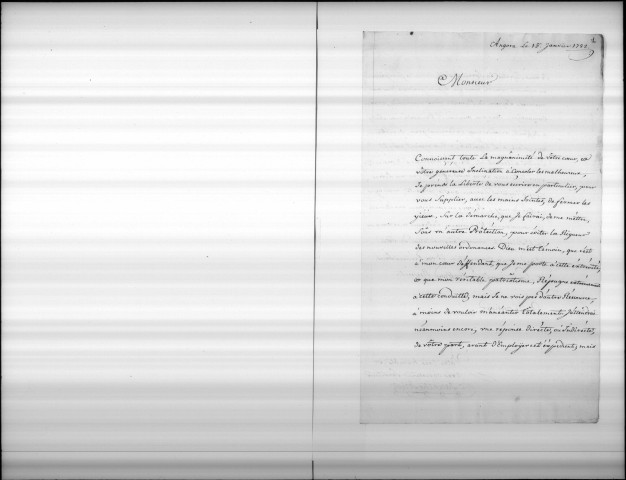 Angora Le 15 Janvier
Monsieur
Connoissant toute La magnanimité de vôtre cœur, &
vôtre généreuse Inclination à consoler les malheureux,
Je prends la Liberté de vous écrire en particulier, pour
vous Supplier, avec les mains Jointes, de fermer les
yieux, Sur la démarche, que Je ferai, de me mèttre,
Sous un'autre Protéction, pour éviter La Rigueur
des nouvelles ordonances. Dieu m'est témoin, que c'est
à mon cœur deffendant, que Je me porte à cette éxtrémité,
& que mon véritable patriotisme, Répugne
à cette conduitte, mais Je ne vois pas d'autre Ressource,
à moins de vouloir m'anéantir totalement, J'attendrai
néanmoins encore, une réponse Directe, ou Indirecte,
de vôtre part, avant d'Employer cet éxpédient; mais